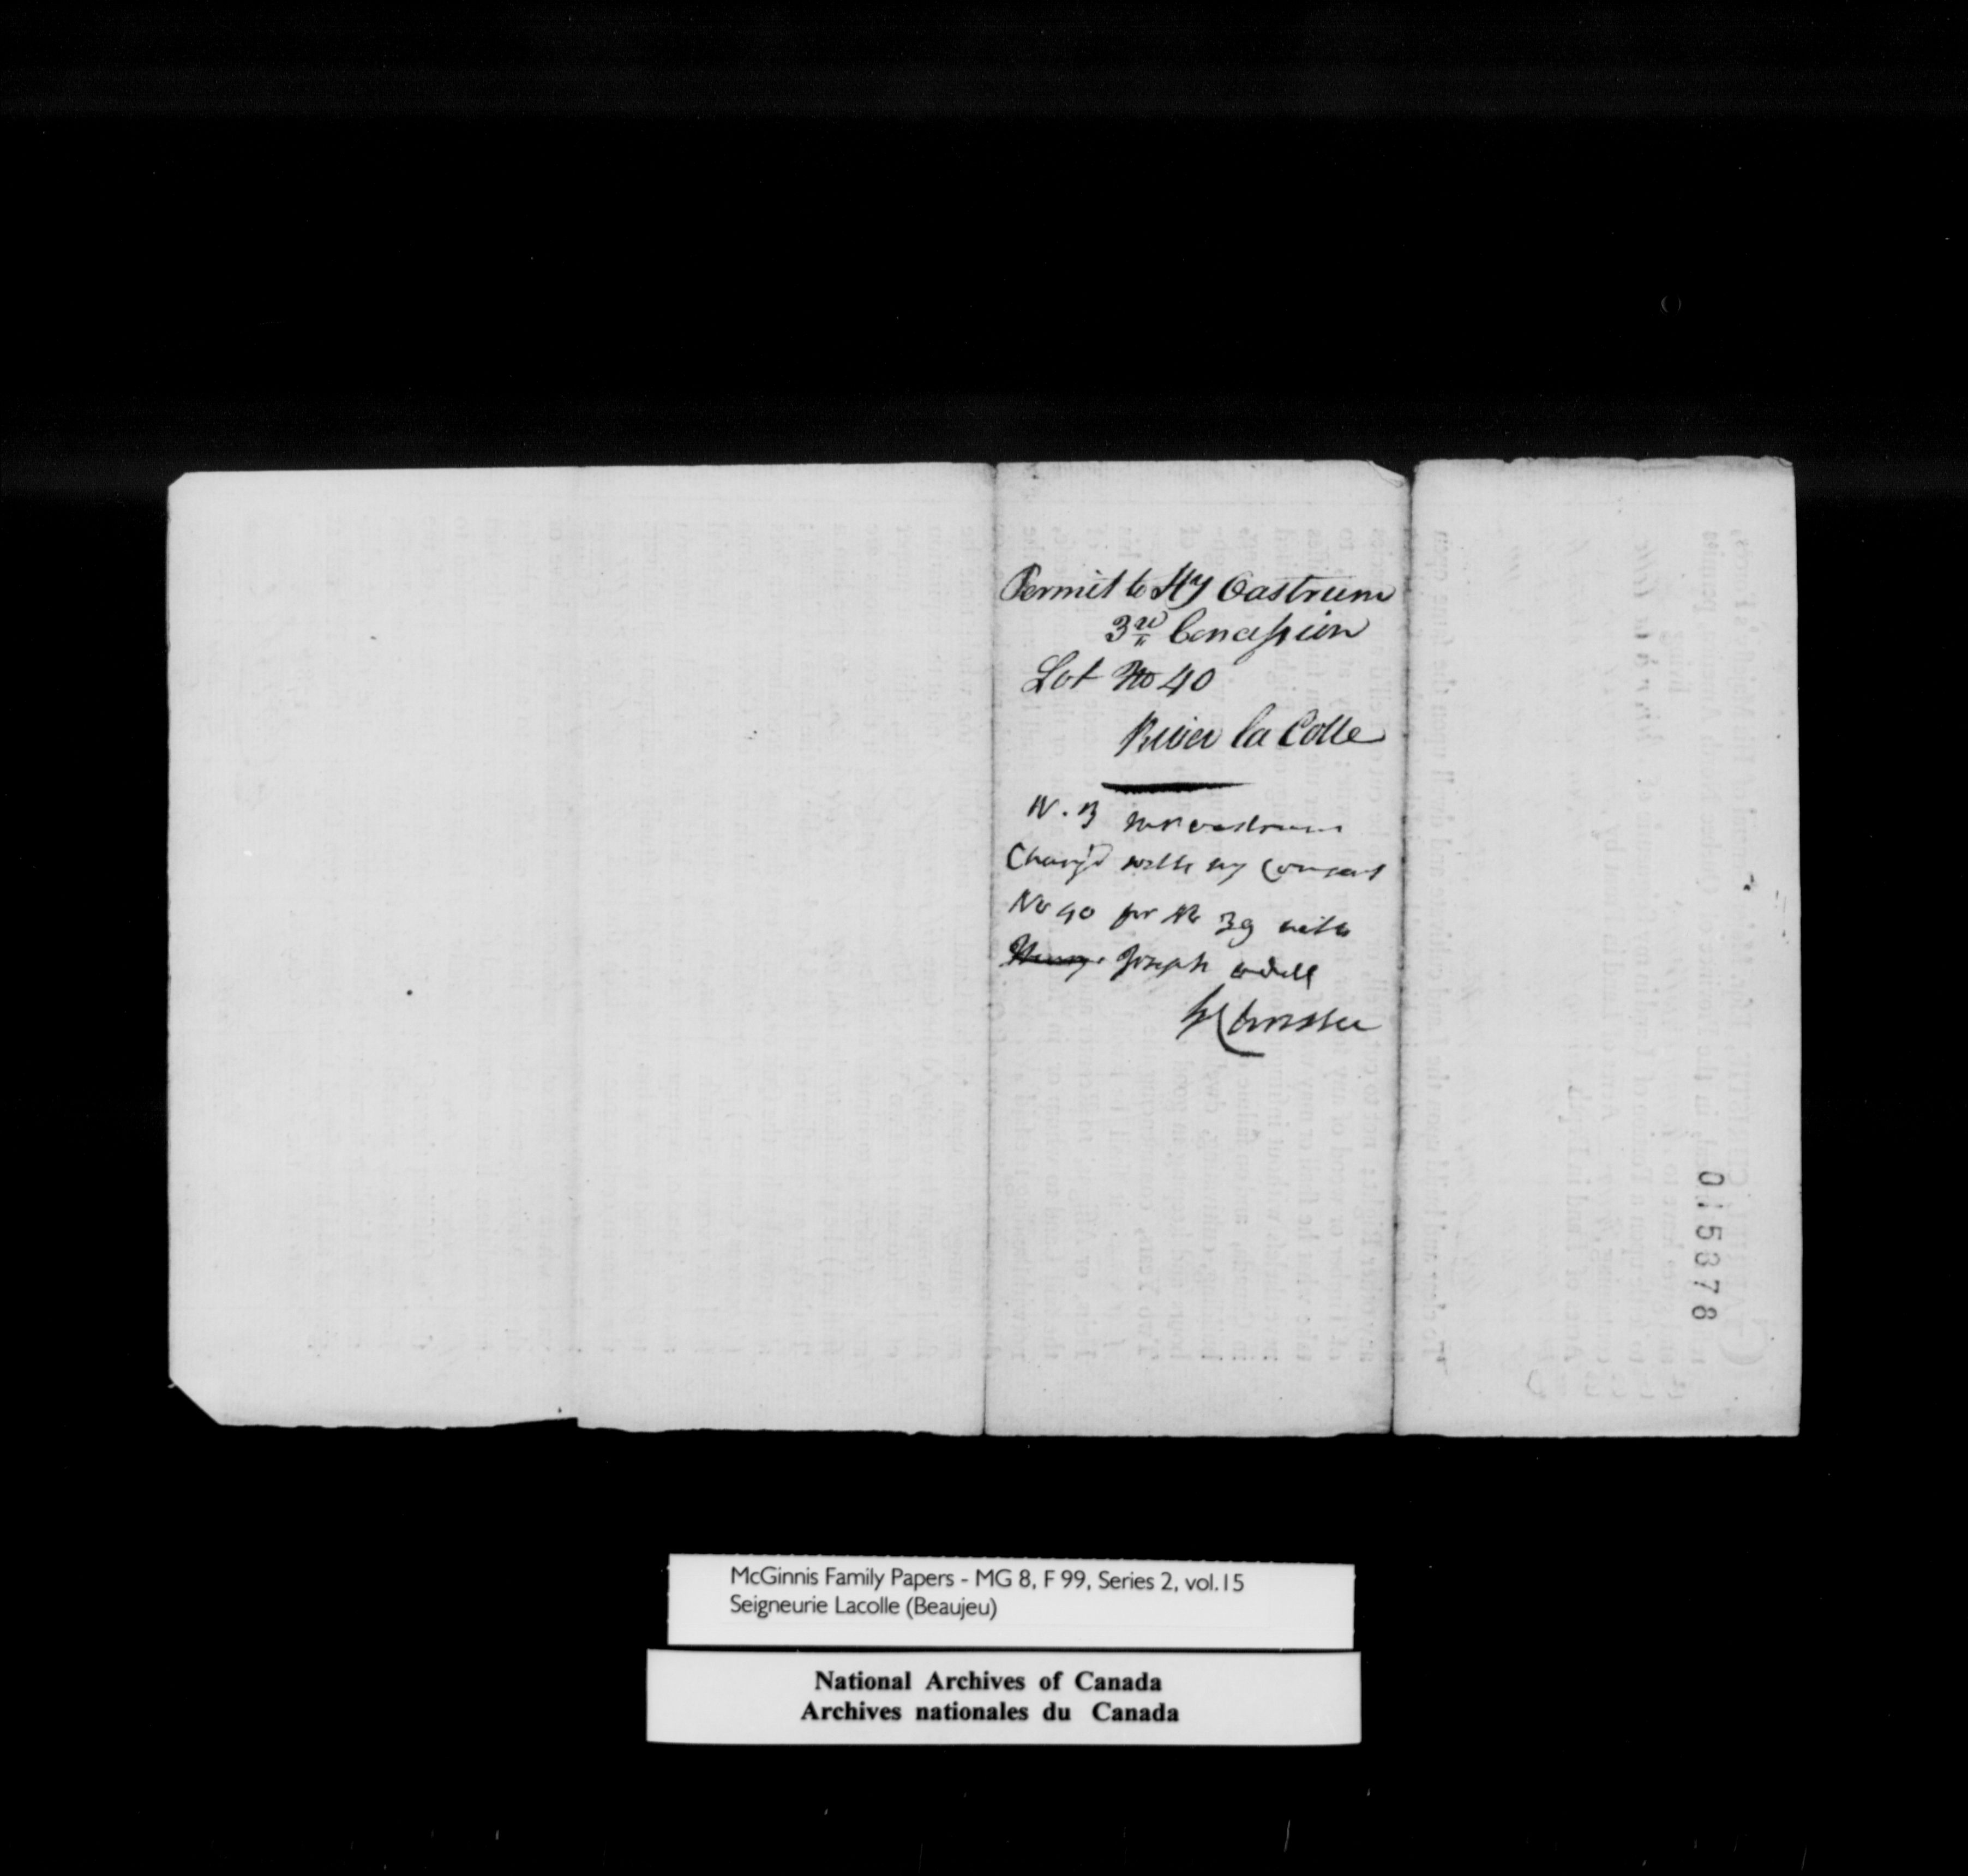 Permit to Hy Oastrum
3rd Concession
Lot No 40
River la Colle
N.B Mr oastrum
Chang'd with my Consent
No 40 for No 39 with
Henry Joseph odell
015378
McGinnis Family Papers - MG 8, F 99, Series 2, vol.15
Seigneurie Lacolle (Beaujeu)
National Archives of Canada
Archives nationales du Canada